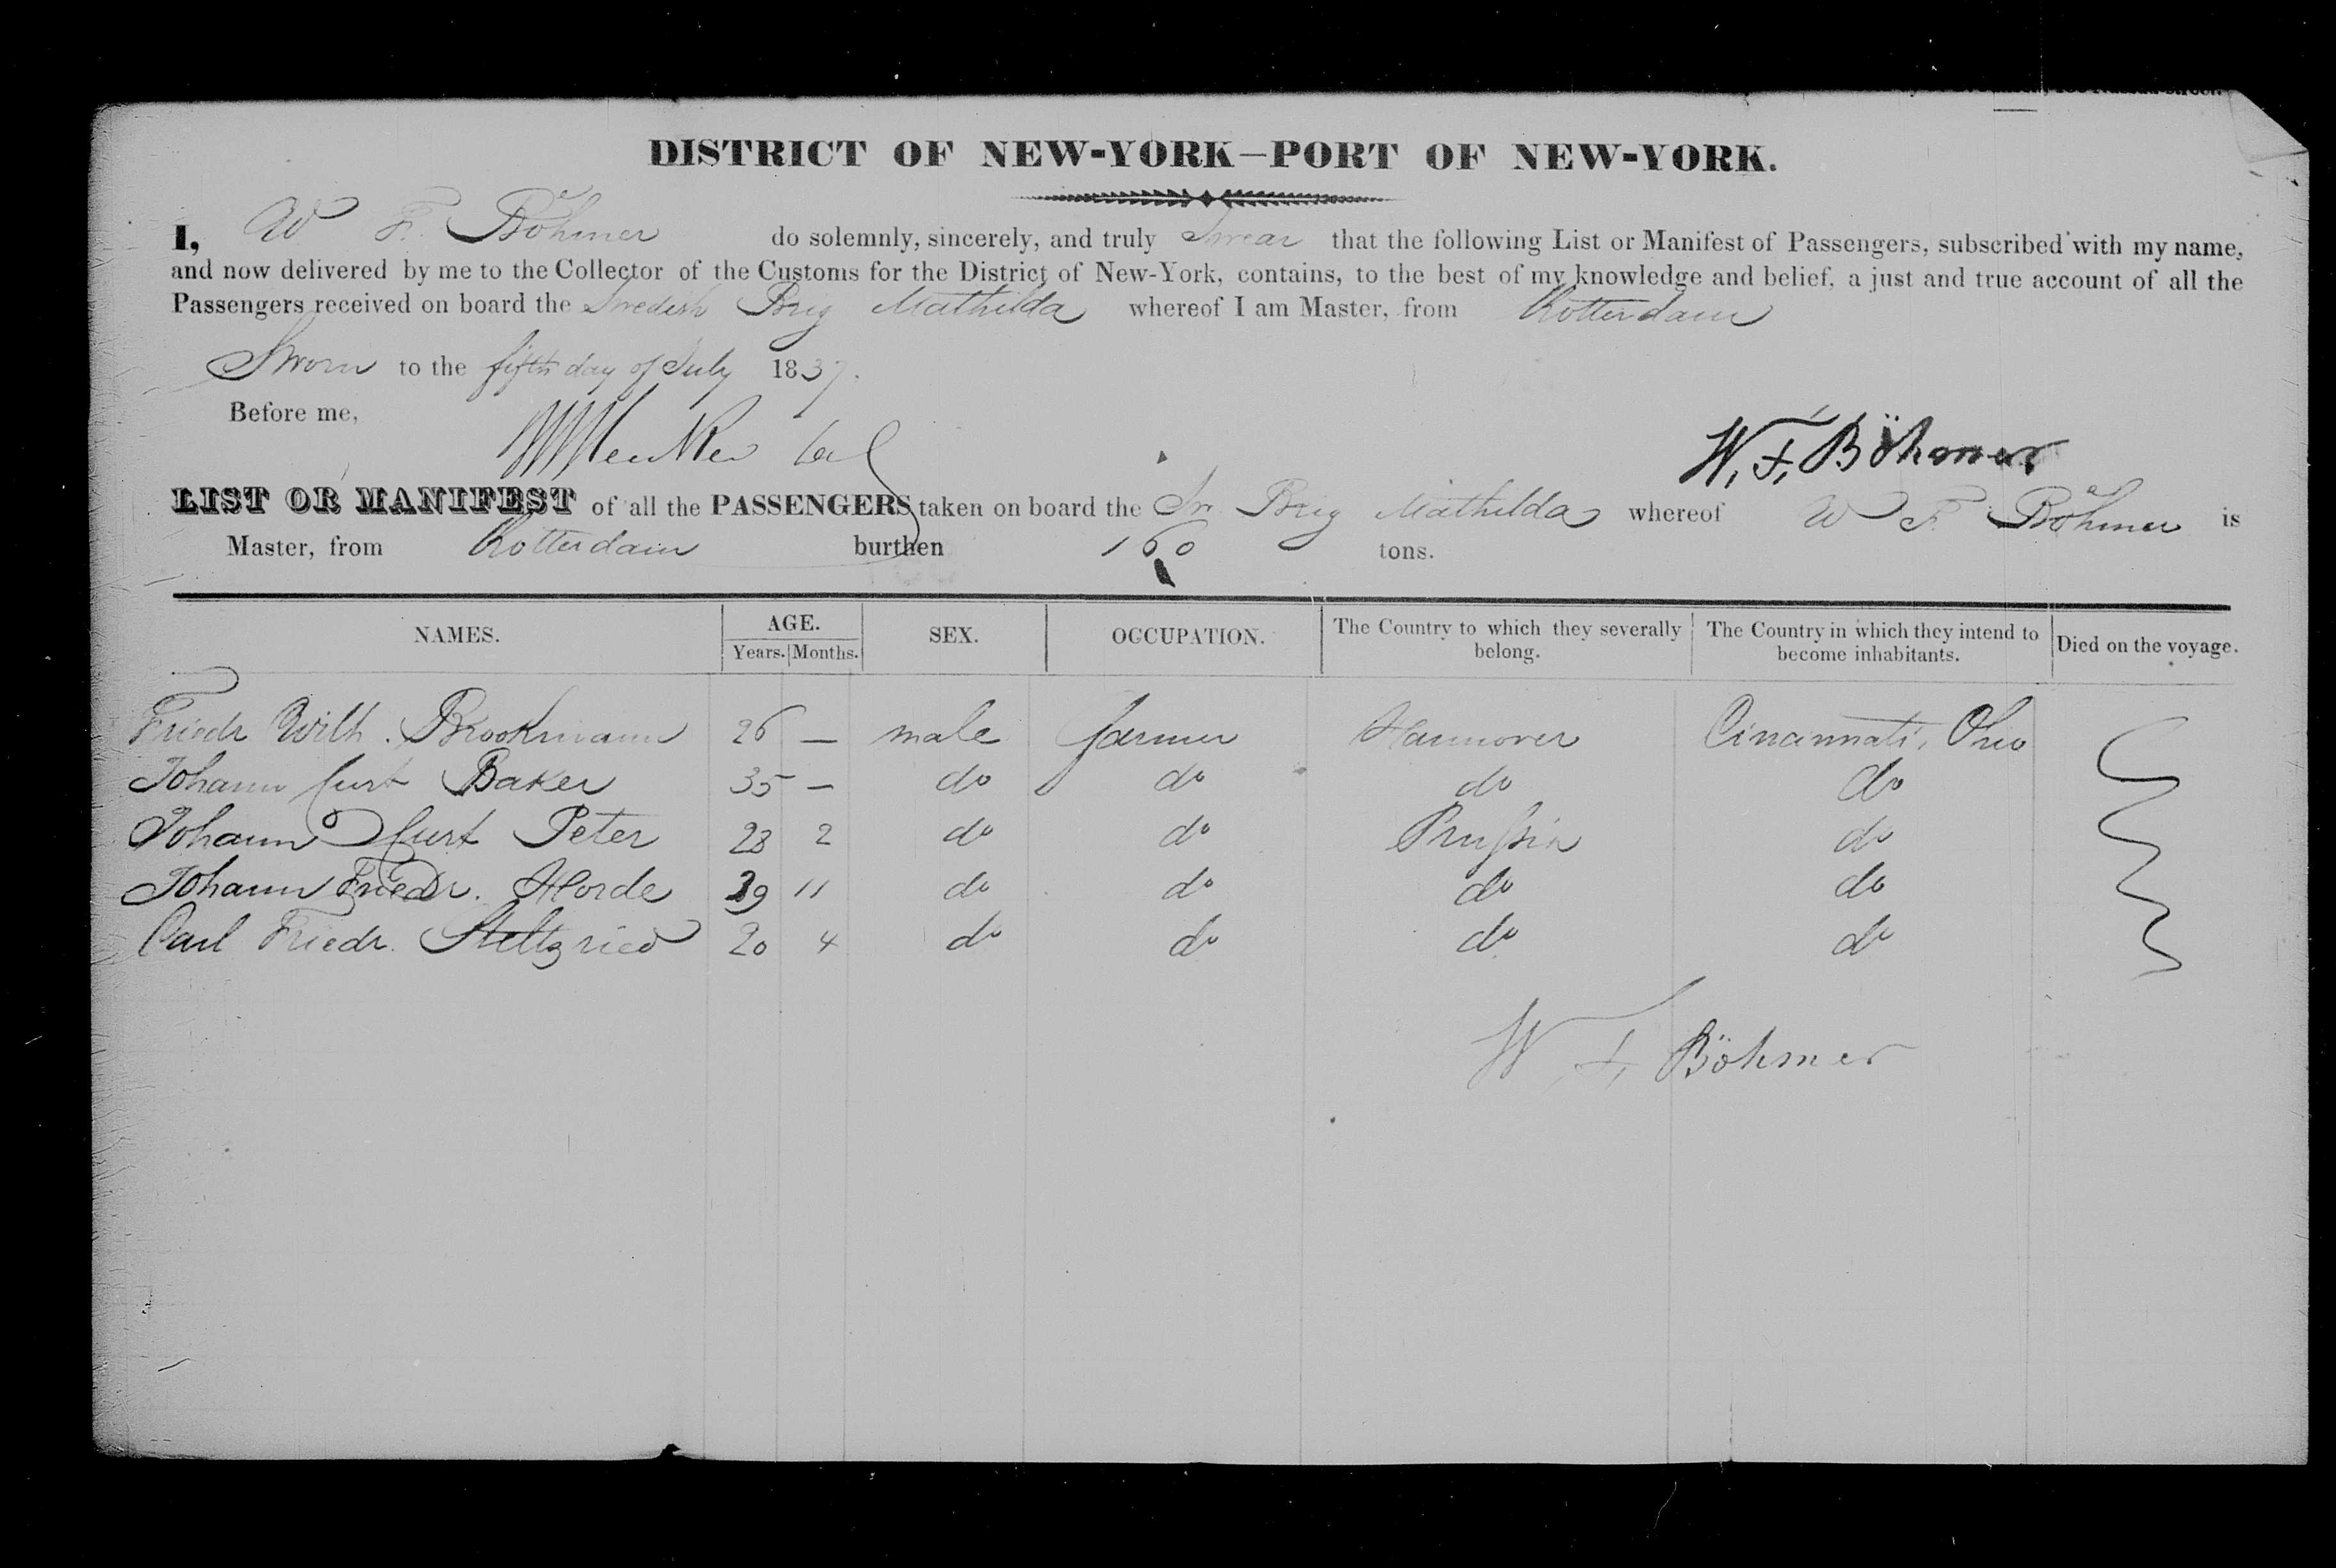 DISTRICT OF NEW-YORK—PORT OF NEW-YORK.
I, W F. Böhmer do solemnly, sincerely, and truly Swear that the following List or Manifest of Passengers, subscribed with my name,
and now delivered by me to the Collector of the Customs for the District of New-York, contains, to the best of my knowledge and belief, a just and true account of all the
Passengers received on board the Swedish Brig Mathilda whereof I am Master, from Rotterdam
Sworn to the fifth day of July 1837.
Before me,
W. F. Böhmer
LIST OR MANIFEST of all the PASSENGERS taken on board the Sw Brig Mathilda whereof W F. Böhmer is
Master, from Rotterdam burthen 160 tons.
NAMES. AGE. Years. Months. SEX. OCCUPATION. The Country to which they severally belong. The Country in which they intend to become inhabitants. Died on the voyage.
Friedr Wilh. Brookmann 26 — male farmer Hannover Cincinnati, Ohio
Johann Curt Baker 35 — do do do do
Johann Curt Peter 28 2 do do Prussia do
Johann Friedr. Horde 39 11 do do do do
Carl Friedr. Steltzried 20 4 do do do do
W. F. Böhmer